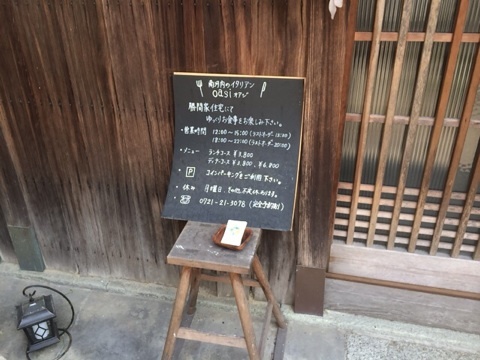 南河内のイタリアン
oasi オアジ
勝間家住宅にて
ゆっくりお食事をお楽しみ下さい。
・営業時間 12:00〜15:00 (ラストオーダー 13:30)
18:00〜22:00 (ラストオーダー 20:00)
・メニュー ランチコース ¥3,800
ディナーコース ¥3,800, ¥6,800
・P コインパーキングをご利用下さい。
・休み 月曜日、その他、不定休あります。
・☎ 0721-21-3078 (完全予約制)